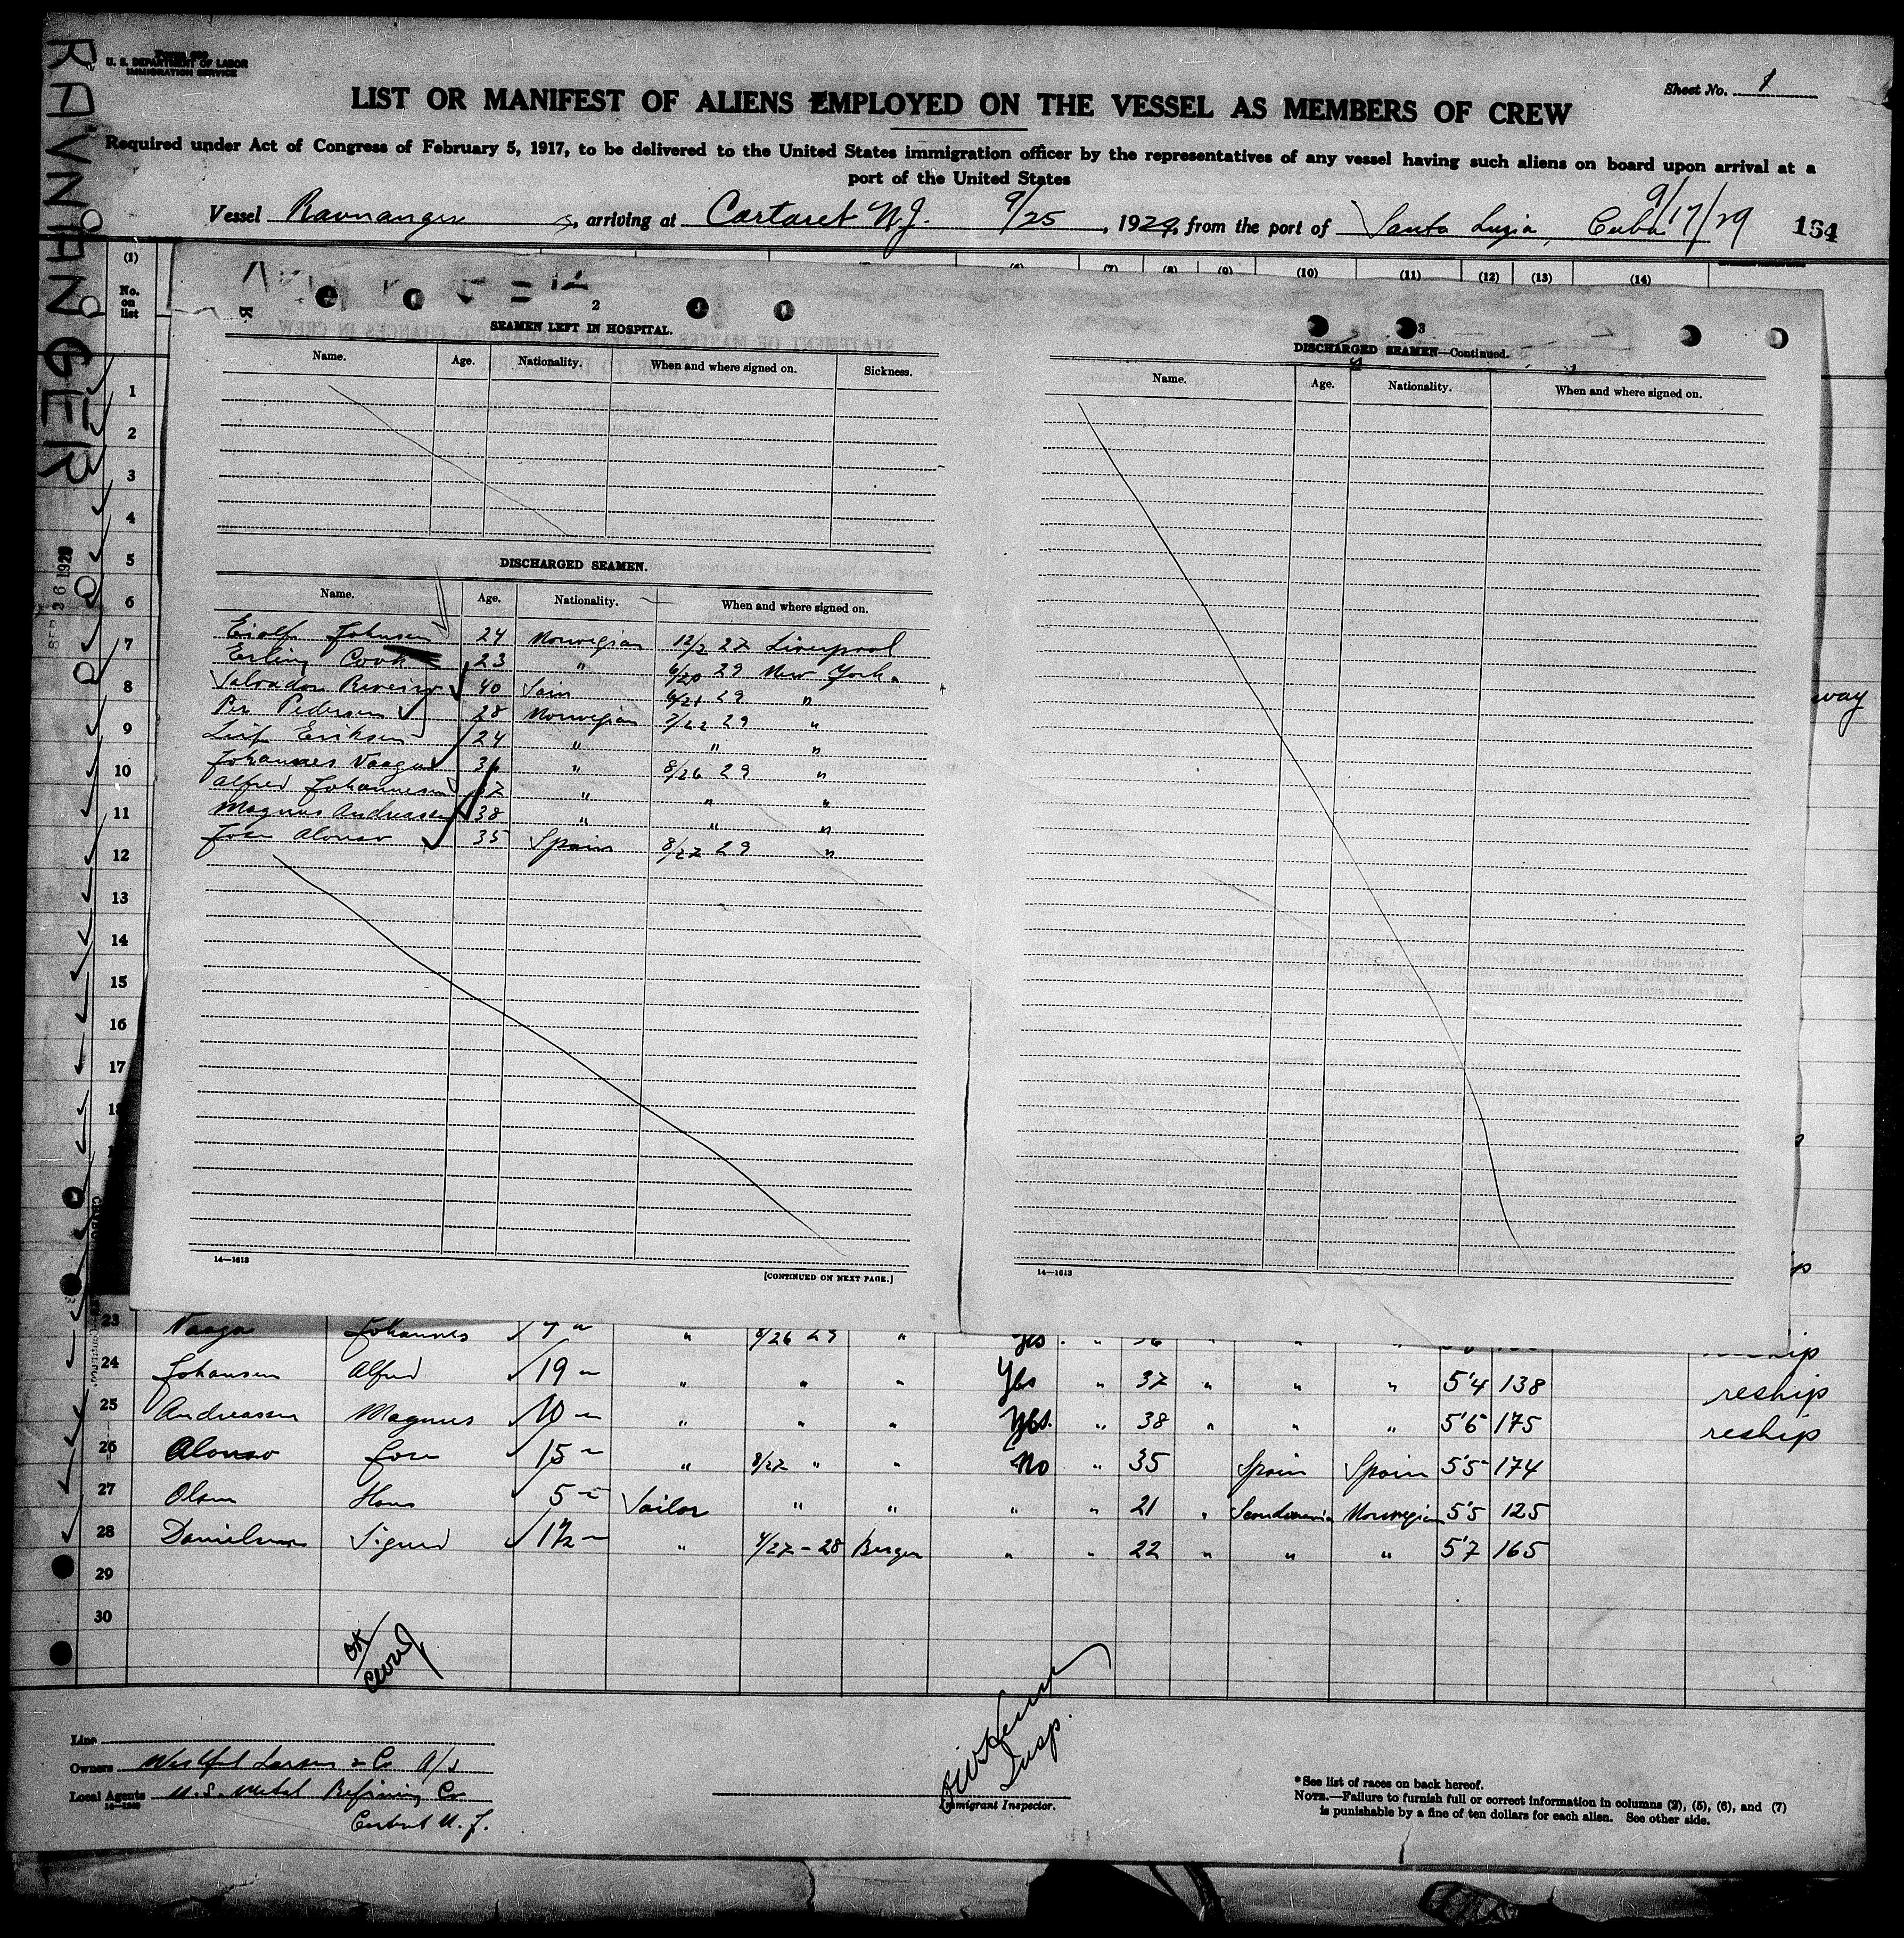 RAVNANGER
U. S. DEPARTMENT OF LABOR
IMMIGRATION SERVICE
Sheet No. 1
LIST OR MANIFEST OF ALIENS EMPLOYED ON THE VESSEL AS MEMBERS OF CREW
Required under Act of Congress of February 5, 1917, to be delivered to the United States immigration officer by the representatives of any vessel having such aliens on board upon arrival at a
port of the United States
Vessel Ravnanger, arriving at Cartaret N.J. 9/25, 1929, from the port of Santa Luzia, Cuba 9/17/29 164
(1) (7) (8) (9) (10) (11) (12) (13) (14)
No. on list
2
SEAMEN LEFT IN HOSPITAL.
Name. Age. Nationality. When and where signed on. Sickness.
DISCHARGED SEAMEN.
Name. Age. Nationality. When and where signed on.
Eiolf Johnsen 24 Norwegian 12/2 27 Liverpool
Erling Cook 23 " 6/20 29 New York.
Salvador 40 6/21 29 "
Per Pedersen 28 Norwegian 7/22 29 "
Leif Eriksen 24 " " "
Johannes Vaaga 36 " 8/26 29 "
Alfred Johannesen 37 " " "
Magnus Andreassen 38 " " "
Jose Alonso 35 Spain 8/27 29 "
14—1613
[CONTINUED ON NEXT PAGE.]
3
DISCHARGED SEAMEN—Continued.
Name. Age. Nationality. When and where signed on.
14—1613
1
2
3
4
5
6
7
8
9
10
11
12
13
14
15
16
17
18
way
23 Vaaga Johannes " 8/26 29 " Yes " 36
24 Johansen Alfred 19 " " " Yes " 37 " " " 5'4 138 reship
25 Andreassen Magnus 10 " " " Yes. " 38 " " " 5'6 175 reship
26 Alonso Jose 15 " 8/27 " " No " 35 Spain Spain 5'5 174
27 Olsen Hans 5 Sailor " " " " 21 " Scandinavia Norwegian 5'5 125
28 Danielsen Sigurd 1½ " 4/27-28 Bergen " " 22 " " " 5'7 165
29
30
OK
Line
Owners Westfal Larsen & Co A/S
Local Agents U.S. Metal Refining Co
Cartret N.J.
Insp.
Immigrant Inspector.
*See list of races on back hereof.
NOTE.—Failure to furnish full or correct information in columns (2), (5), (6), and (7)
is punishable by a fine of ten dollars for each alien. See other side.